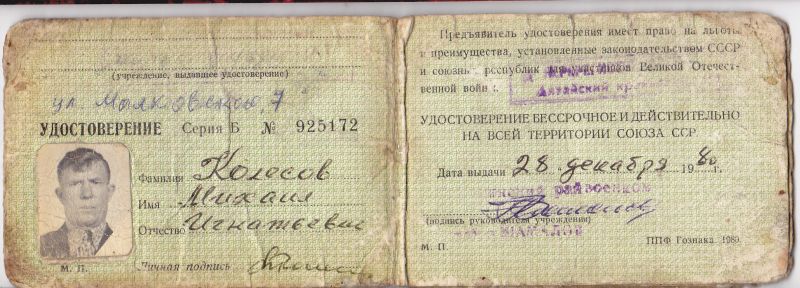 (учреждение, выдавшее удостоверение)
ул Маяковского, 7
УДОСТОВЕРЕНИЕ Серия Б № 925172
Фамилия Колесов
Имя Михаил
Отчество Игнатьевич
М. П. Личная подпись
Предъявитель удостоверения имеет право на льготы
и преимущества, установленные законодательством СССР
и союзных республик для участников Великой Отечест-
венной войны.
Алтайский
УДОСТОВЕРЕНИЕ БЕССРОЧНОЕ И ДЕЙСТВИТЕЛЬНО
НА ВСЕЙ ТЕРРИТОРИИ СОЮЗА ССР
Дата выдачи 28 декабря 1980 г.
райвоенком
(подпись руководителя учреждения)
М. П. ППФ Гознака. 1980.